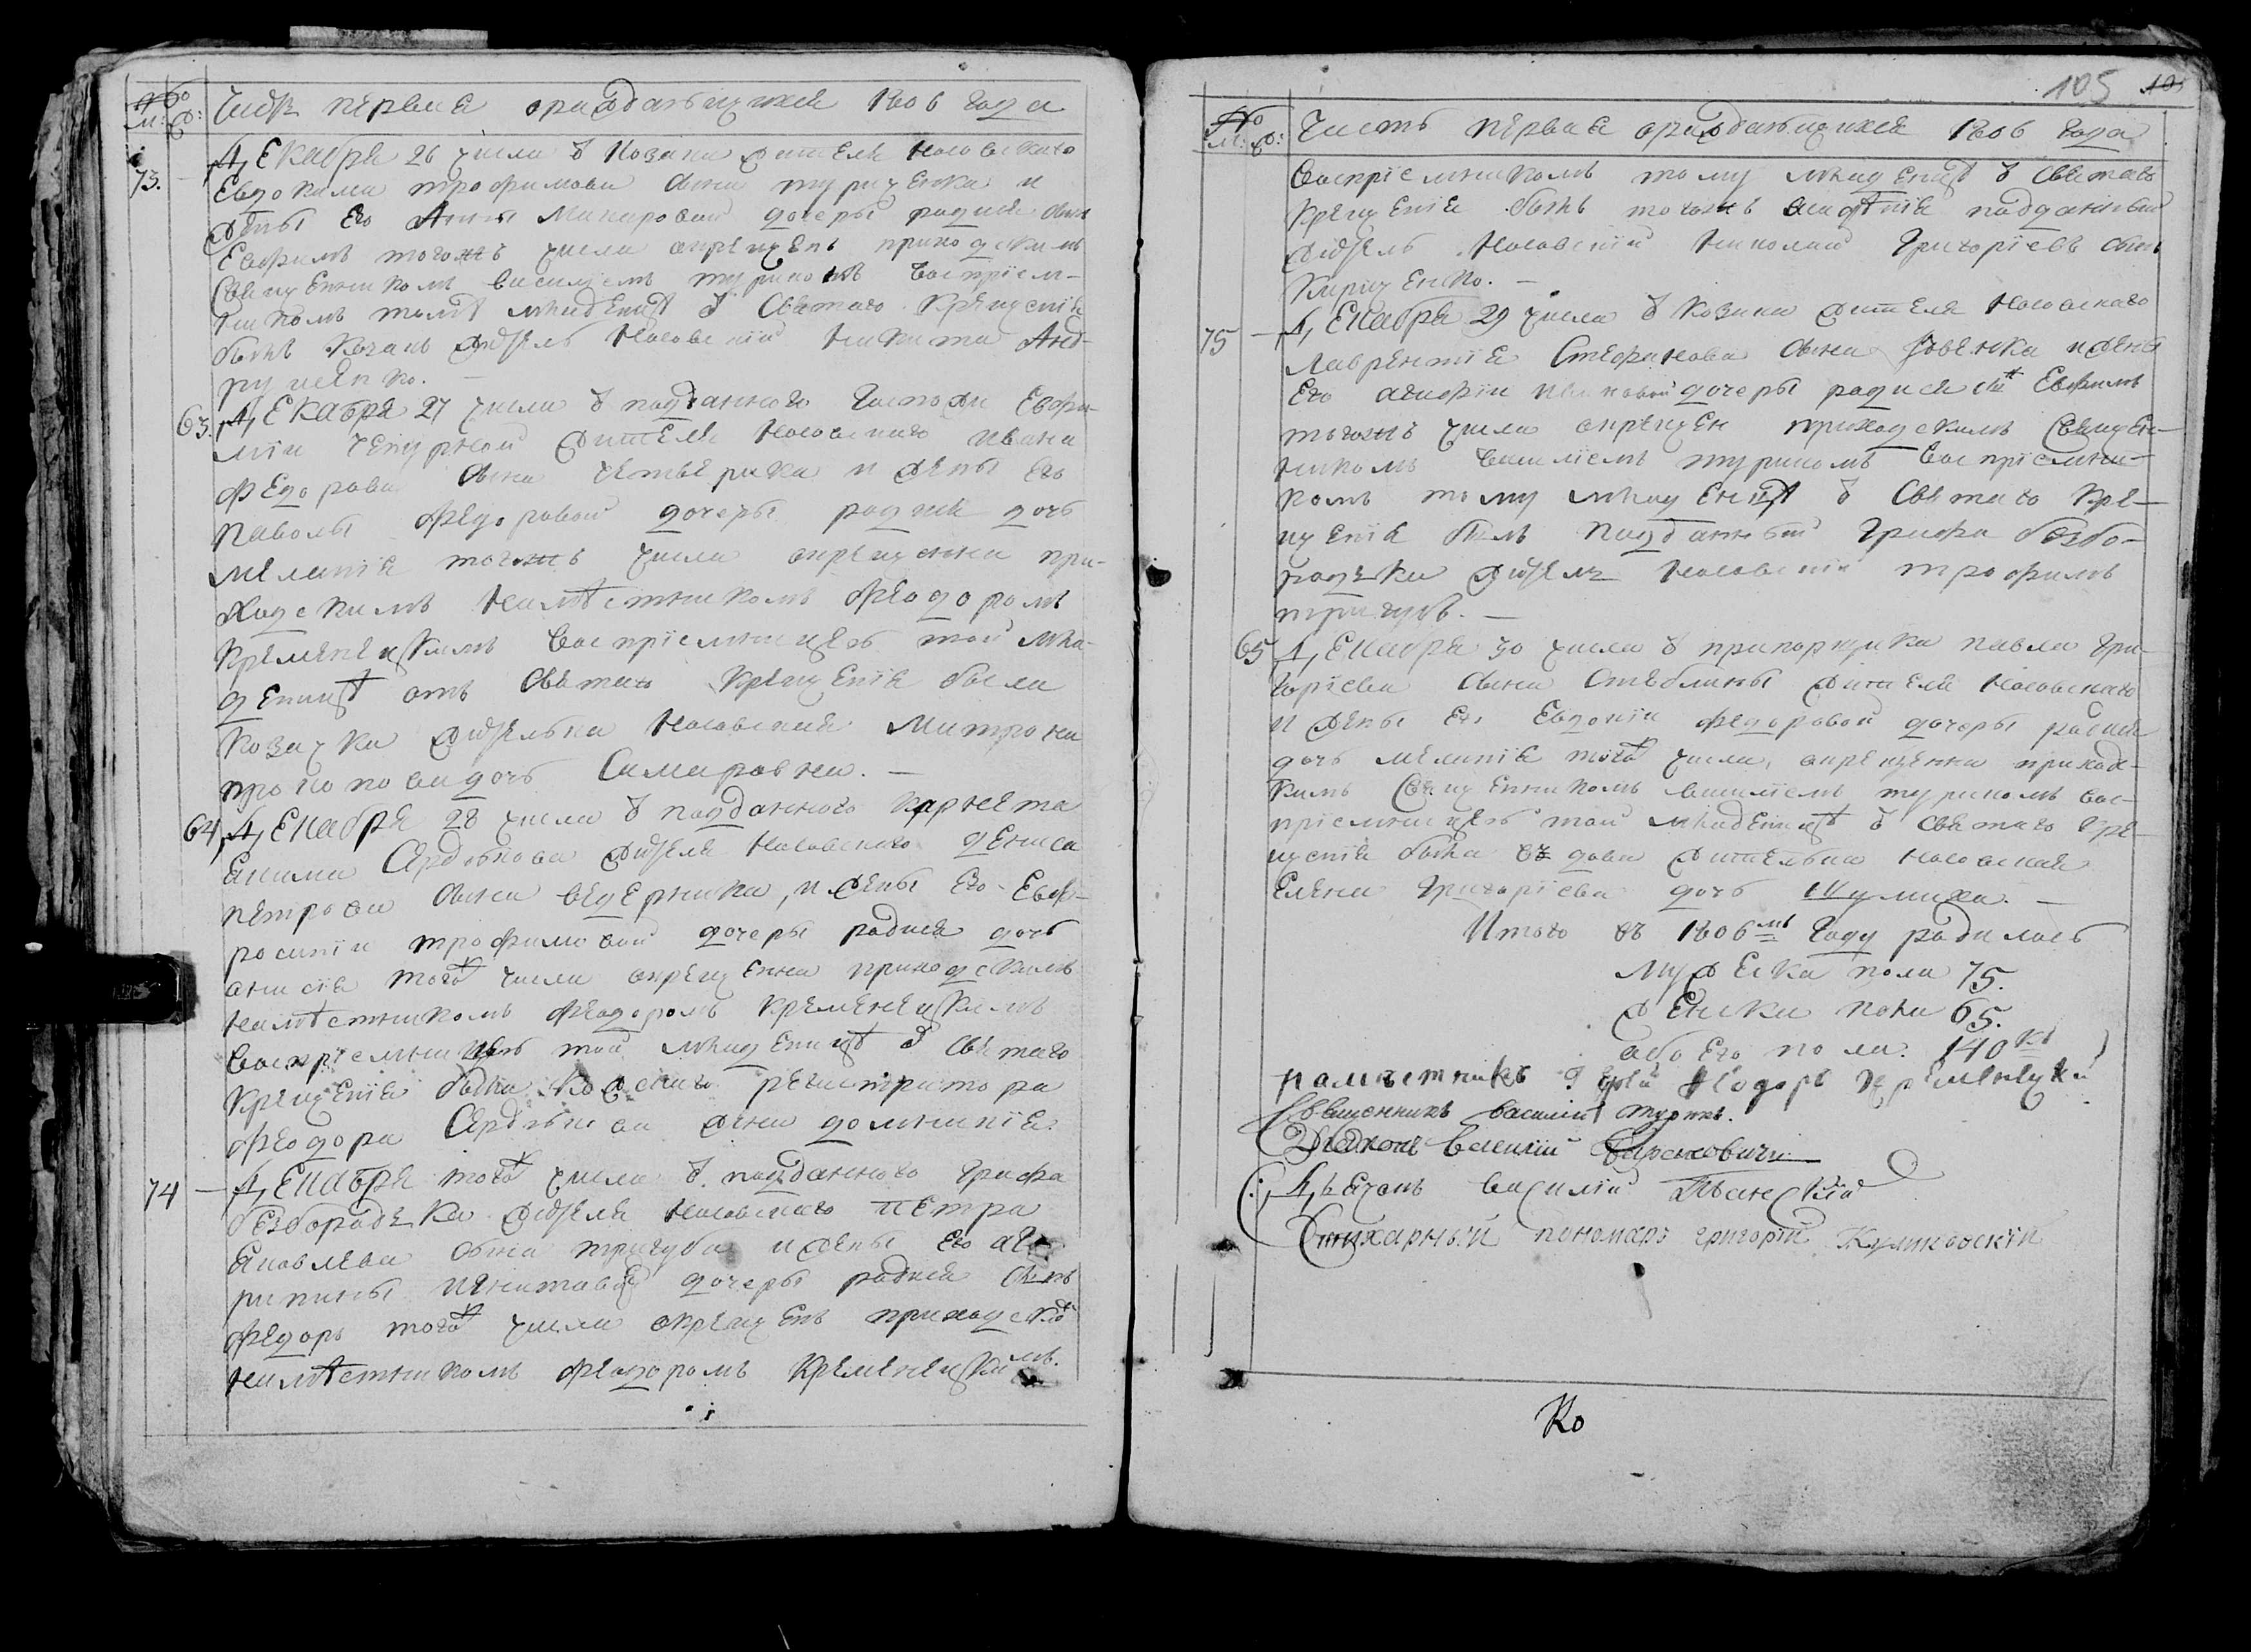 №
М: Ж:
Часть первая ораждающихся 1806 года
73. Декабря 26 числа от козака жителя носовскаго
Евдокима трофимова сына турченка и
жены его Анны Макаровой дочеры родился сынъ
Евфимъ тогожъ числа окрещенъ приходскимъ
Священникомъ василіемъ туриномъ воспріем-
никомъ тому младенцу от Святаго Крещенія
былъ козакъ житель Носовскій Никита Анд-
рущенко.
63. Декабря 27 числа от подданного Госпожи Евфи-
міи чепурной жителя Носовскаго ивана
Федорова сына четверика и жены его
Параски Федоровой дочеры родися дочь
Меланія тогожъ числа окрещенна при-
ходскимъ Намѣстникомъ Феодоромъ
Кременецкимъ воспріемницею той мла-
деницѣ отъ Святаго Крещенія была
козачка жителька Носовская Матрона
прокопова дочь Самаровна.
64. Декабря 28 числа от подданного корнета
Екима Сердюкова жителя Носовскаго дениса
петрова сына ведерника, и жены его Евф-
росиніи трофимовой дочеры родися дочь
анисія того числа окрещенна приходскимъ
Намѣстникомъ Феодоромъ Кременецкимъ
Воспріемницею той младеницѣ от Святаго
Крещенія была колежскаго регистратора
Феодора Сердюкова жена домникія
74 Декабря того числа от подданного Графа
безбородька жителя Носовскаго петра
Яковлева сына тригуба и жены его ага-
рипины Никитовой дочеры родися сынъ
Федоръ того числа окрещенъ приходским
Намѣстникомъ Феодоромъ Кременецкимъ.
105
№
М: Ж:
Часть первая ораждающихся 1806 года
Воспріемникомъ тому младенцу от Святаго
Крещенія былъ тогожъ владѣнія подданный
житель Носовскій Николай Григоріевъ сынъ
Кириченко.
75 Декабря 29 числа от козака жителя Носовского
Лаврентія Стефанова сына Довенка и жены
его агафіи ивановой дочеры родися сынъ Евфимъ
тогожъ числа окрещен приходскимъ Священ-
никомъ василіемъ туриномъ Воспріемни-
комъ тому младенцу от Святаго Кре-
щенія былъ подданный Графа безбо-
родька житель Носовскій трофимъ
тригубъ.
65 Декабря 30 числа от прапорщика павла Гри-
горіева сына Стеблины жителя Носовскаго
и жены его Евдокіи Федоровой дочеры родися
дочь меланія того числа, окрещенна приход-
скимъ Священникомъ василіемъ туриномъ вос-
пріемницею той младеницѣ от Святаго Кре-
щенія была вдова жителька Носовская
Елена Григоріева дочь Шумиха.
Итого въ 1806мъ Году родилось
мужеска пола 75.
женска пола 65.
обоего пола: 140
намѣстникъ Іерей Феодоръ Кременецкій
Священникъ Василій Туринъ.
Діаконъ Василій
Дьячокъ Василій
Стихарный пономарь григорій Куликовскій
Ко